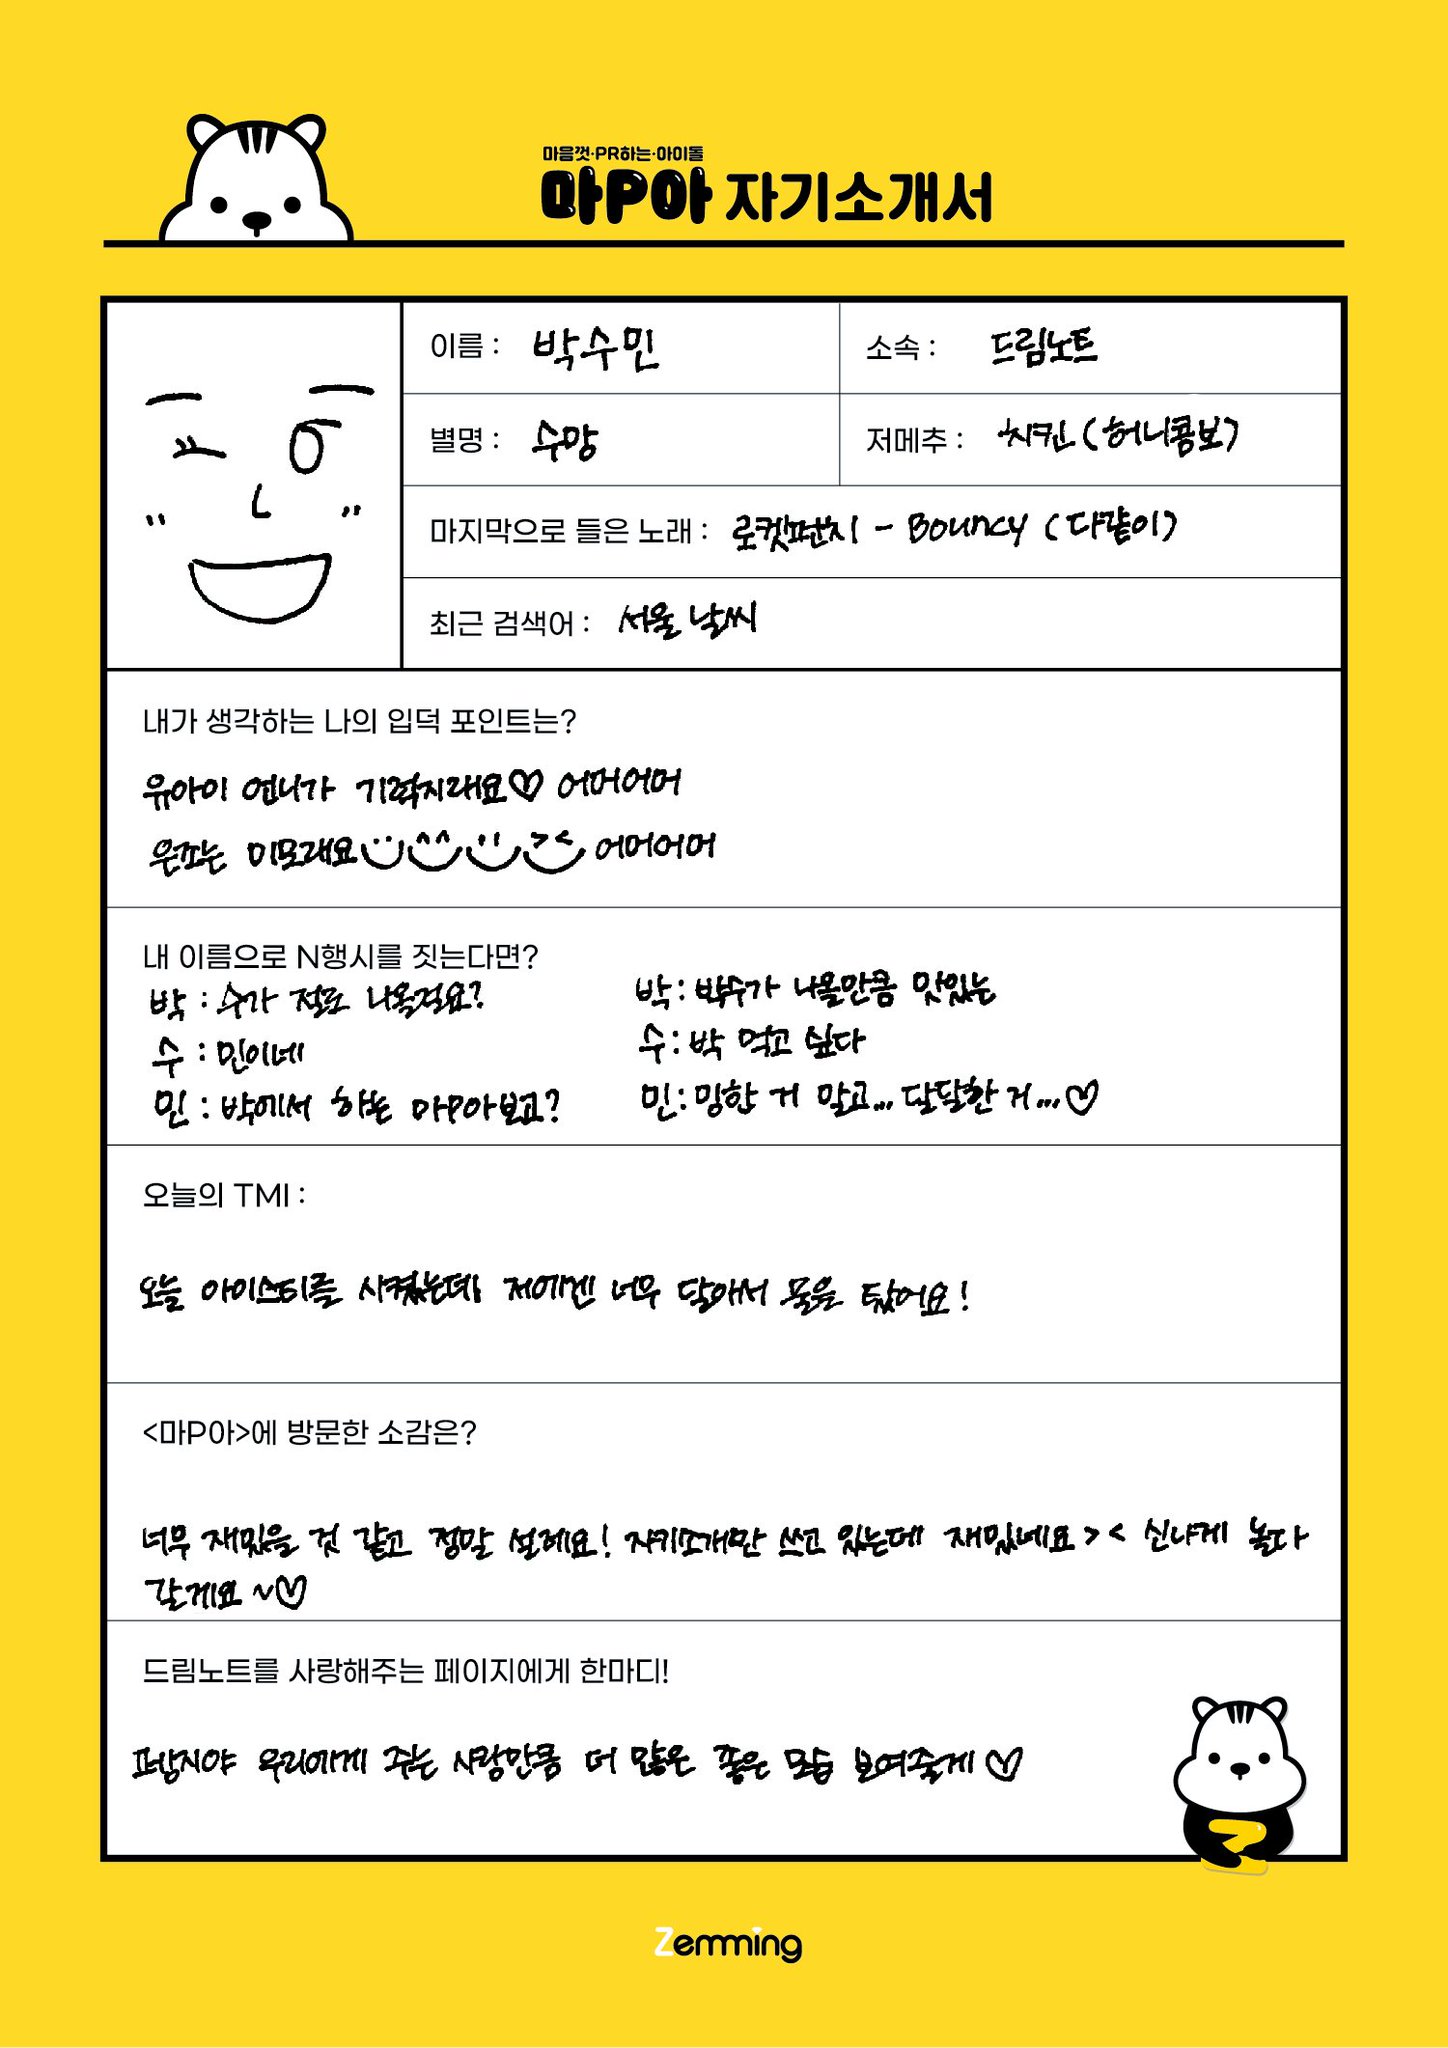 마음껏·PR하는·아이돌
마P아 자기소개서
이름 : 박수민
소속 : 드림노트
별명 : 수망
저메추 : 치킨 (허니콤보)
마지막으로 들은 노래 : 로켓펀치 - Bouncy (다같이)
최근 검색어 : 서울 날씨
내가 생각하는 나의 입덕 포인트는?
유아이 언니가 기럭지래요♡ 어머어머
은조는 미모래요 어머어머
내 이름으로 N행시를 짓는다면?
박 : 수가 절로 나올걸요?
수 : 민이네
민 : 박에서 하는 마P아보고?
박 : 박수가 나올만큼 맛있는
수 : 박 먹고 싶다
민 : 밍한 거 말고... 달달한 거...♡
오늘의 TMI :
오늘 아이스티를 시켰는데 저에겐 너무 달아서 물을 탔어요!
<마P아>에 방문한 소감은?
너무 재밌을 것 같고 정말 설레요! 자기소개만 쓰고 있는데 재밌네요 > < 신나게 놀다
갈게요 ~♡
드림노트를 사랑해주는 페이지에게 한마디!
페이지야 우리에게 주는 사랑만큼 더 많은 좋은 모습 보여줄게 ♡
Zemming